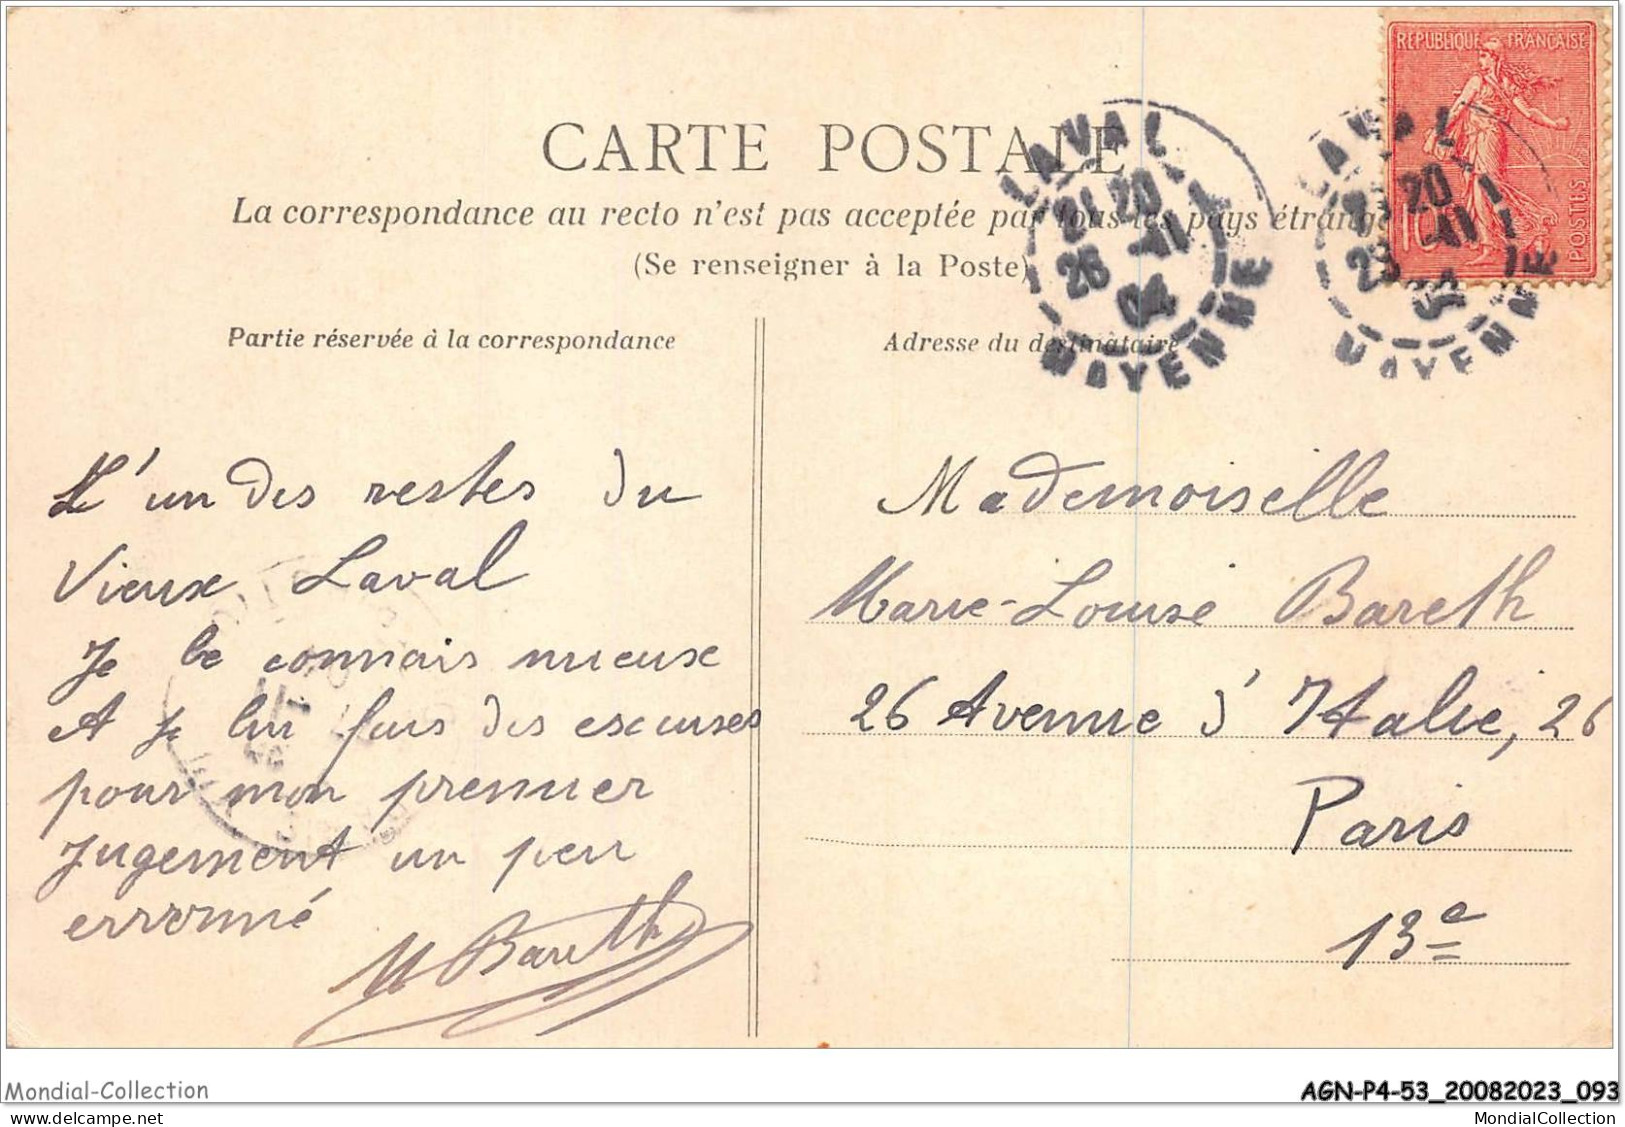 RÉPUBLIQUE FRANÇAISE
POSTES
10
CARTE POSTALE
La correspondance au recto n'est pas acceptée par tous les pays étrang
(Se renseigner à la Poste)
LAVAL
21 20
26 -11
04
MAYENNE
LAVAL
20
-11
04
MAYENNE
Partie réservée à la correspondance
Adresse du destinataire
L'un des restes du
Vieux Laval
Je le connais mieux
Et je lui fais des excuses
pour mon premier
Jugement un peu
erronné
M Bareth
Mademoiselle
Marie-Louise Bareth
26 Avenue d'Italie, 26
Paris
13e
Mondial-Collection
AGN-P4-53_20082023_093
www.delcampe.net
MondialCollection